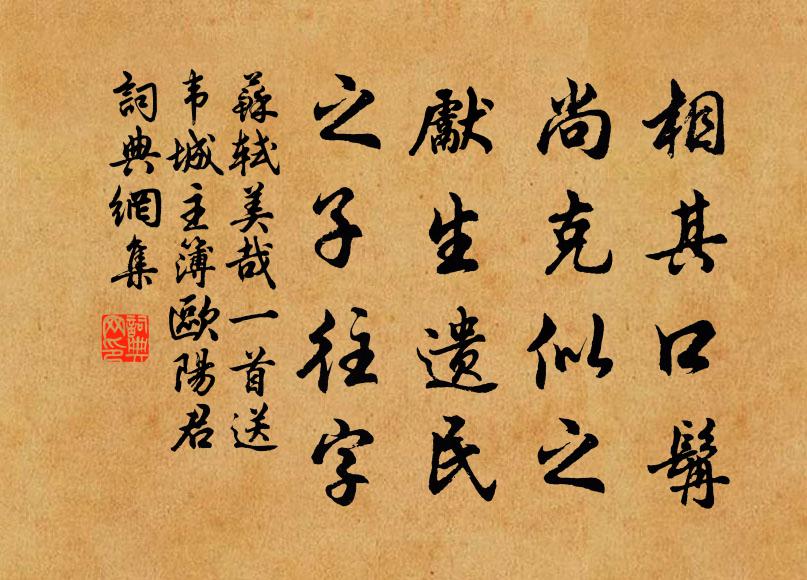 相其口髯
尚克似之
獻生遗民
之子往字
蘇軾美哉一首送
韦城主簿歐陽君
詞典網集
詞典网印